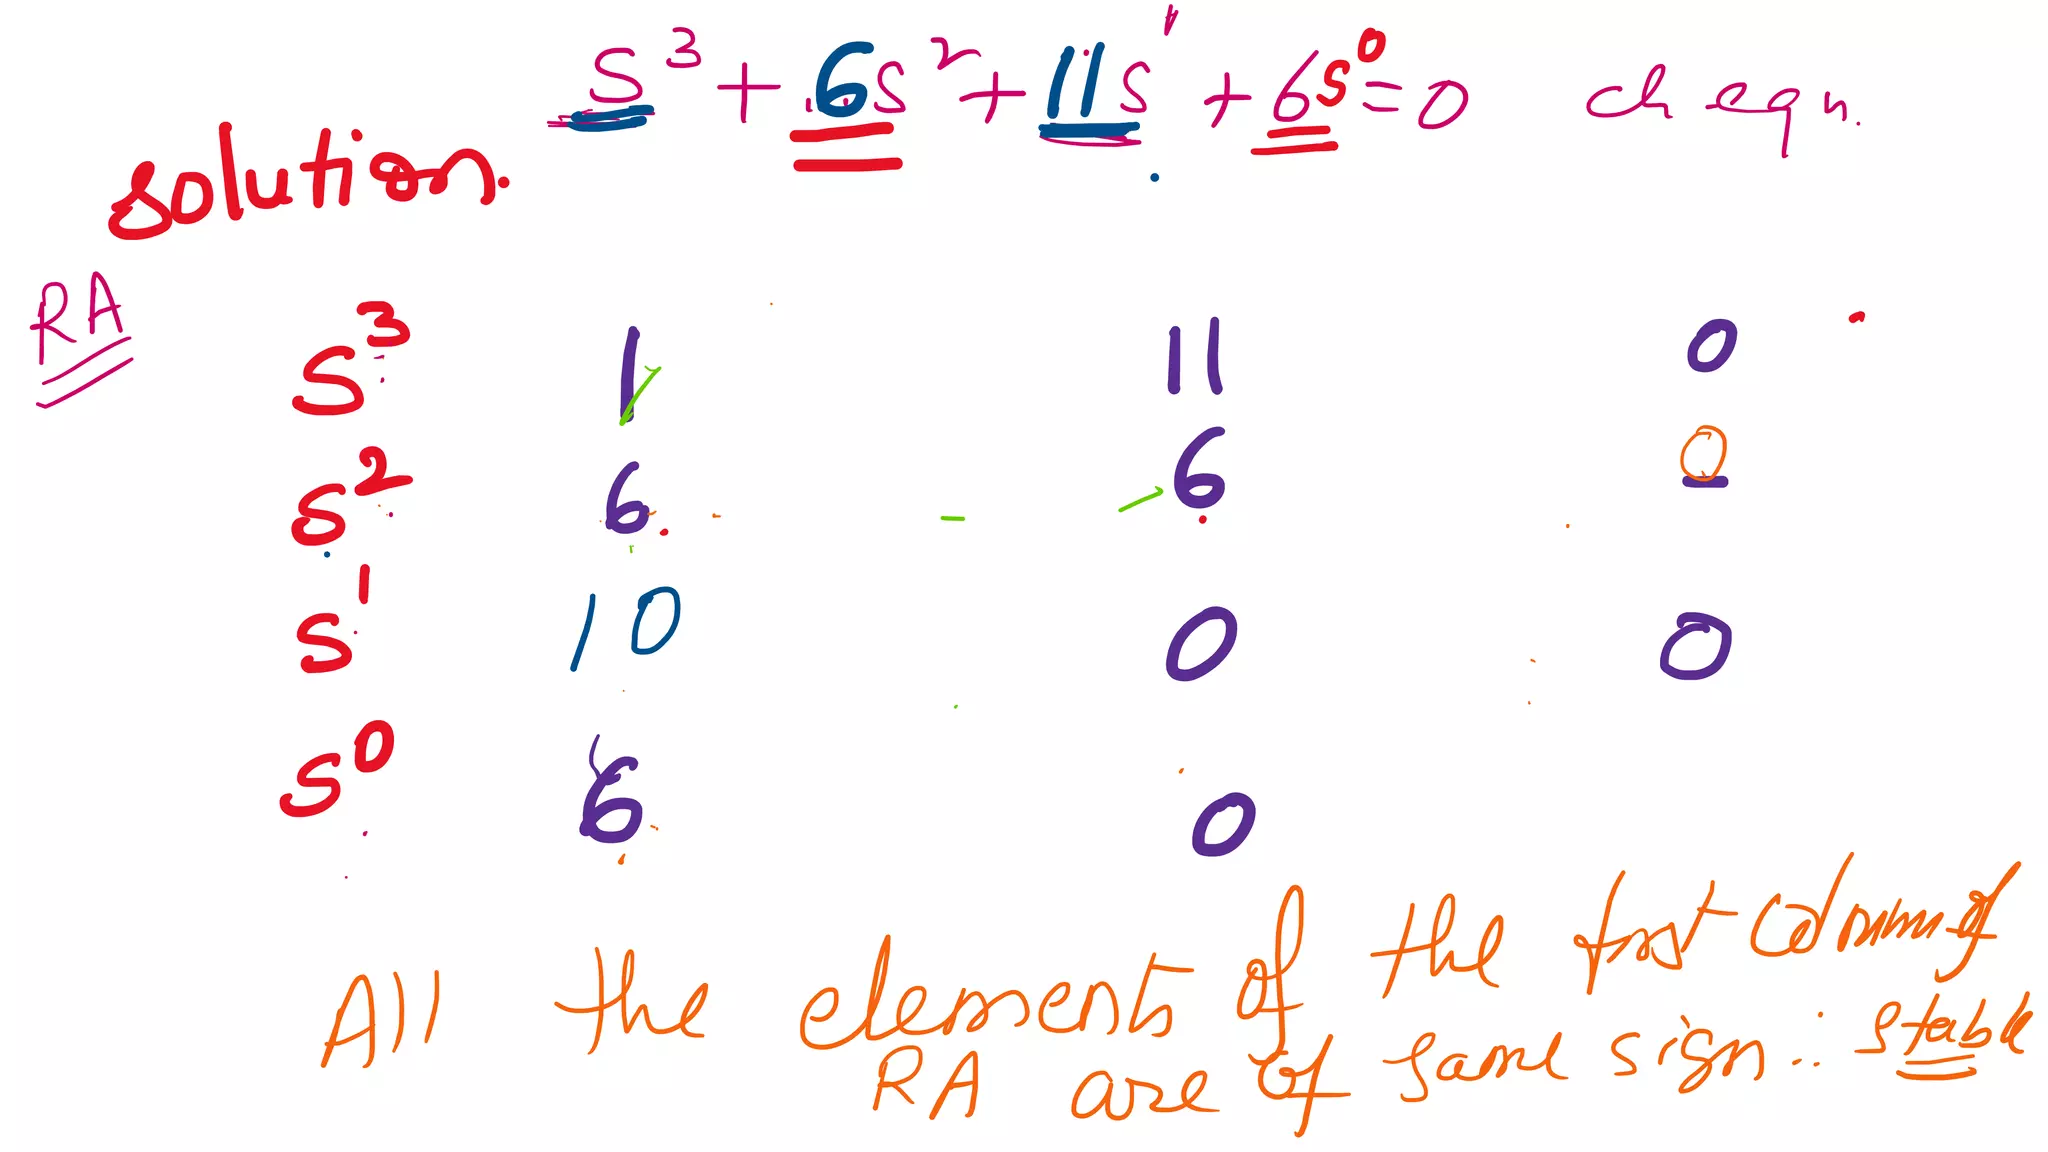 S³ + 6s² + 11s¹ + 6s⁰ = 0 ch eqn.
solution.
RA
S³ 1 11 0
S² 6 6 0
S¹ 10 0 0
S⁰ 6 0
All the elements of the first column of
RA are of same sign ∴ stable